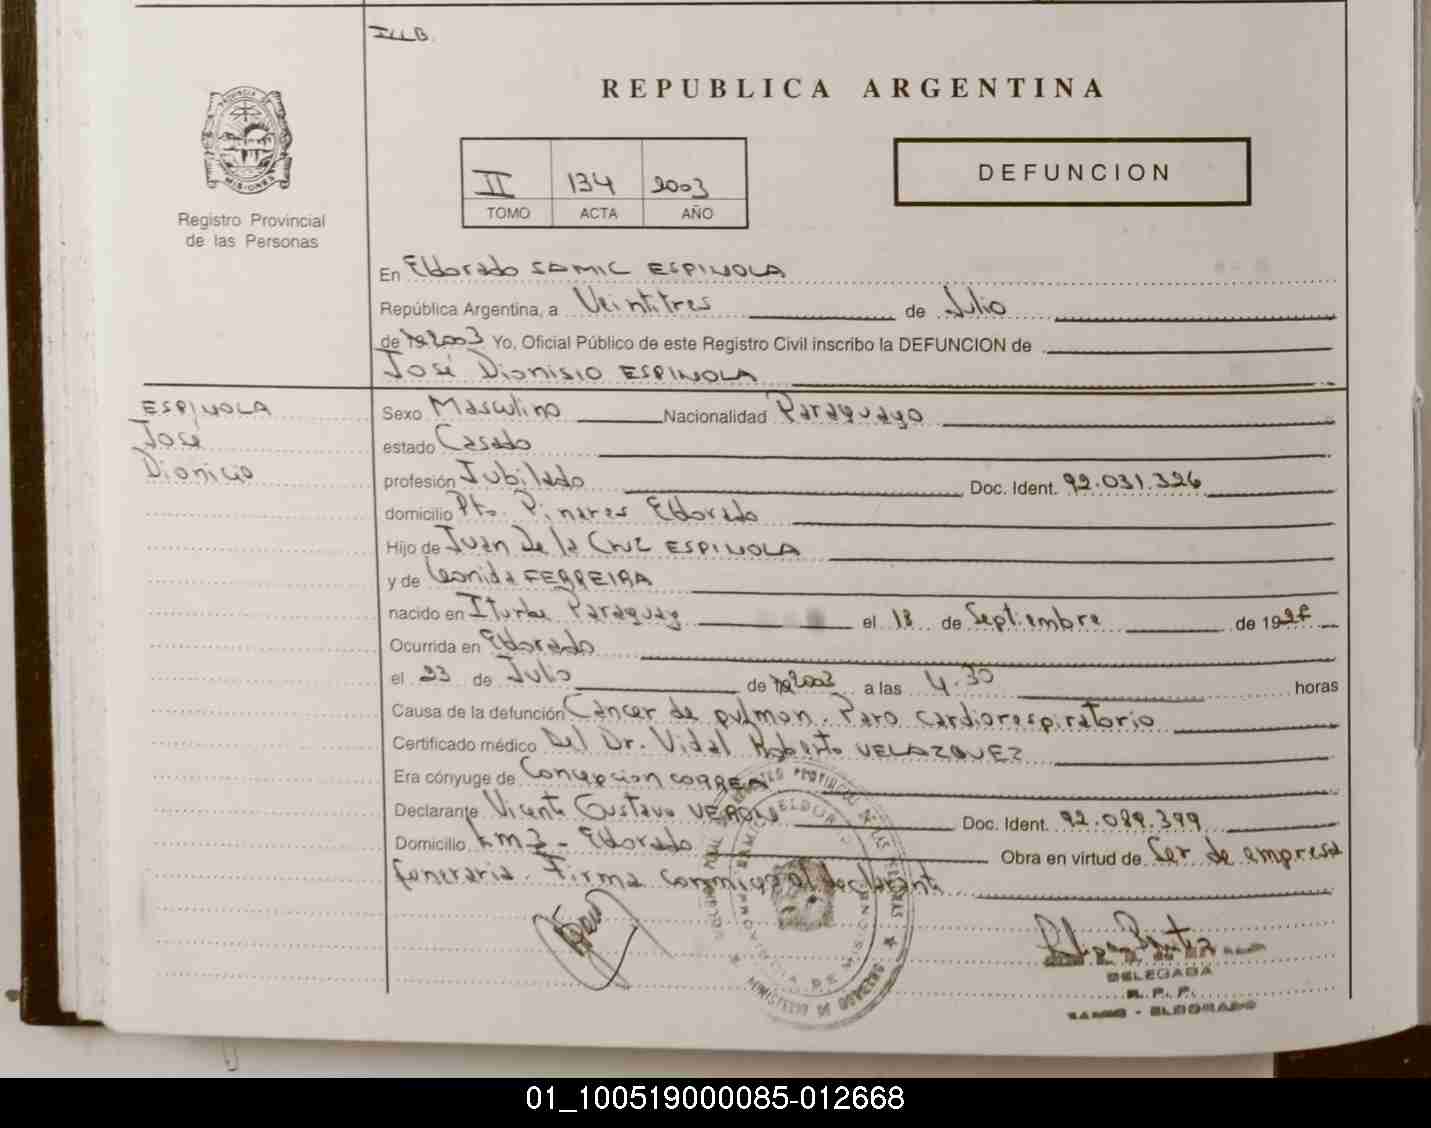 REPUBLICA ARGENTINA
PROVINCIA DE
MISIONES
Registro Provincial
de las Personas
II 134 2003
TOMO ACTA AÑO
DEFUNCION
En Eldorado SAMIC ESPINOLA
República Argentina, a Veintitres de Julio
de 2003 Yo, Oficial Público de este Registro Civil inscribo la DEFUNCION de
José Dionisio ESPINOLA
ESPINOLA
José
Dionicio
Sexo Masculino Nacionalidad Paraguayo
estado Casado
profesión Jubilado Doc. Ident. 92.031.326
domicilio Pto. Pinares Eldorado
Hijo de Juan De la Cruz ESPINOLA
y de Leonida FERREIRA
nacido en Iturbe Paraguay el 18 de Septiembre de 19
Ocurrida en Eldorado
el 23 de Julio de 2003 a las 4.30 horas
Causa de la defunción Cáncer de pulmon. Paro cardiorespiratorio
Certificado médico Del Dr. Vidal Roberto VELAZQUEZ
Era cónyuge de Concepcion CORREA
Declarante Vicente Gustavo Doc. Ident. 92.089.399
Domicilio km 3 - Eldorado Obra en virtud de Ser de empresa
funeraria. Firma conmigo el declarante
DELEGADA
R. P. P.
SAMIC - ELDORADO
01_100519000085-012668